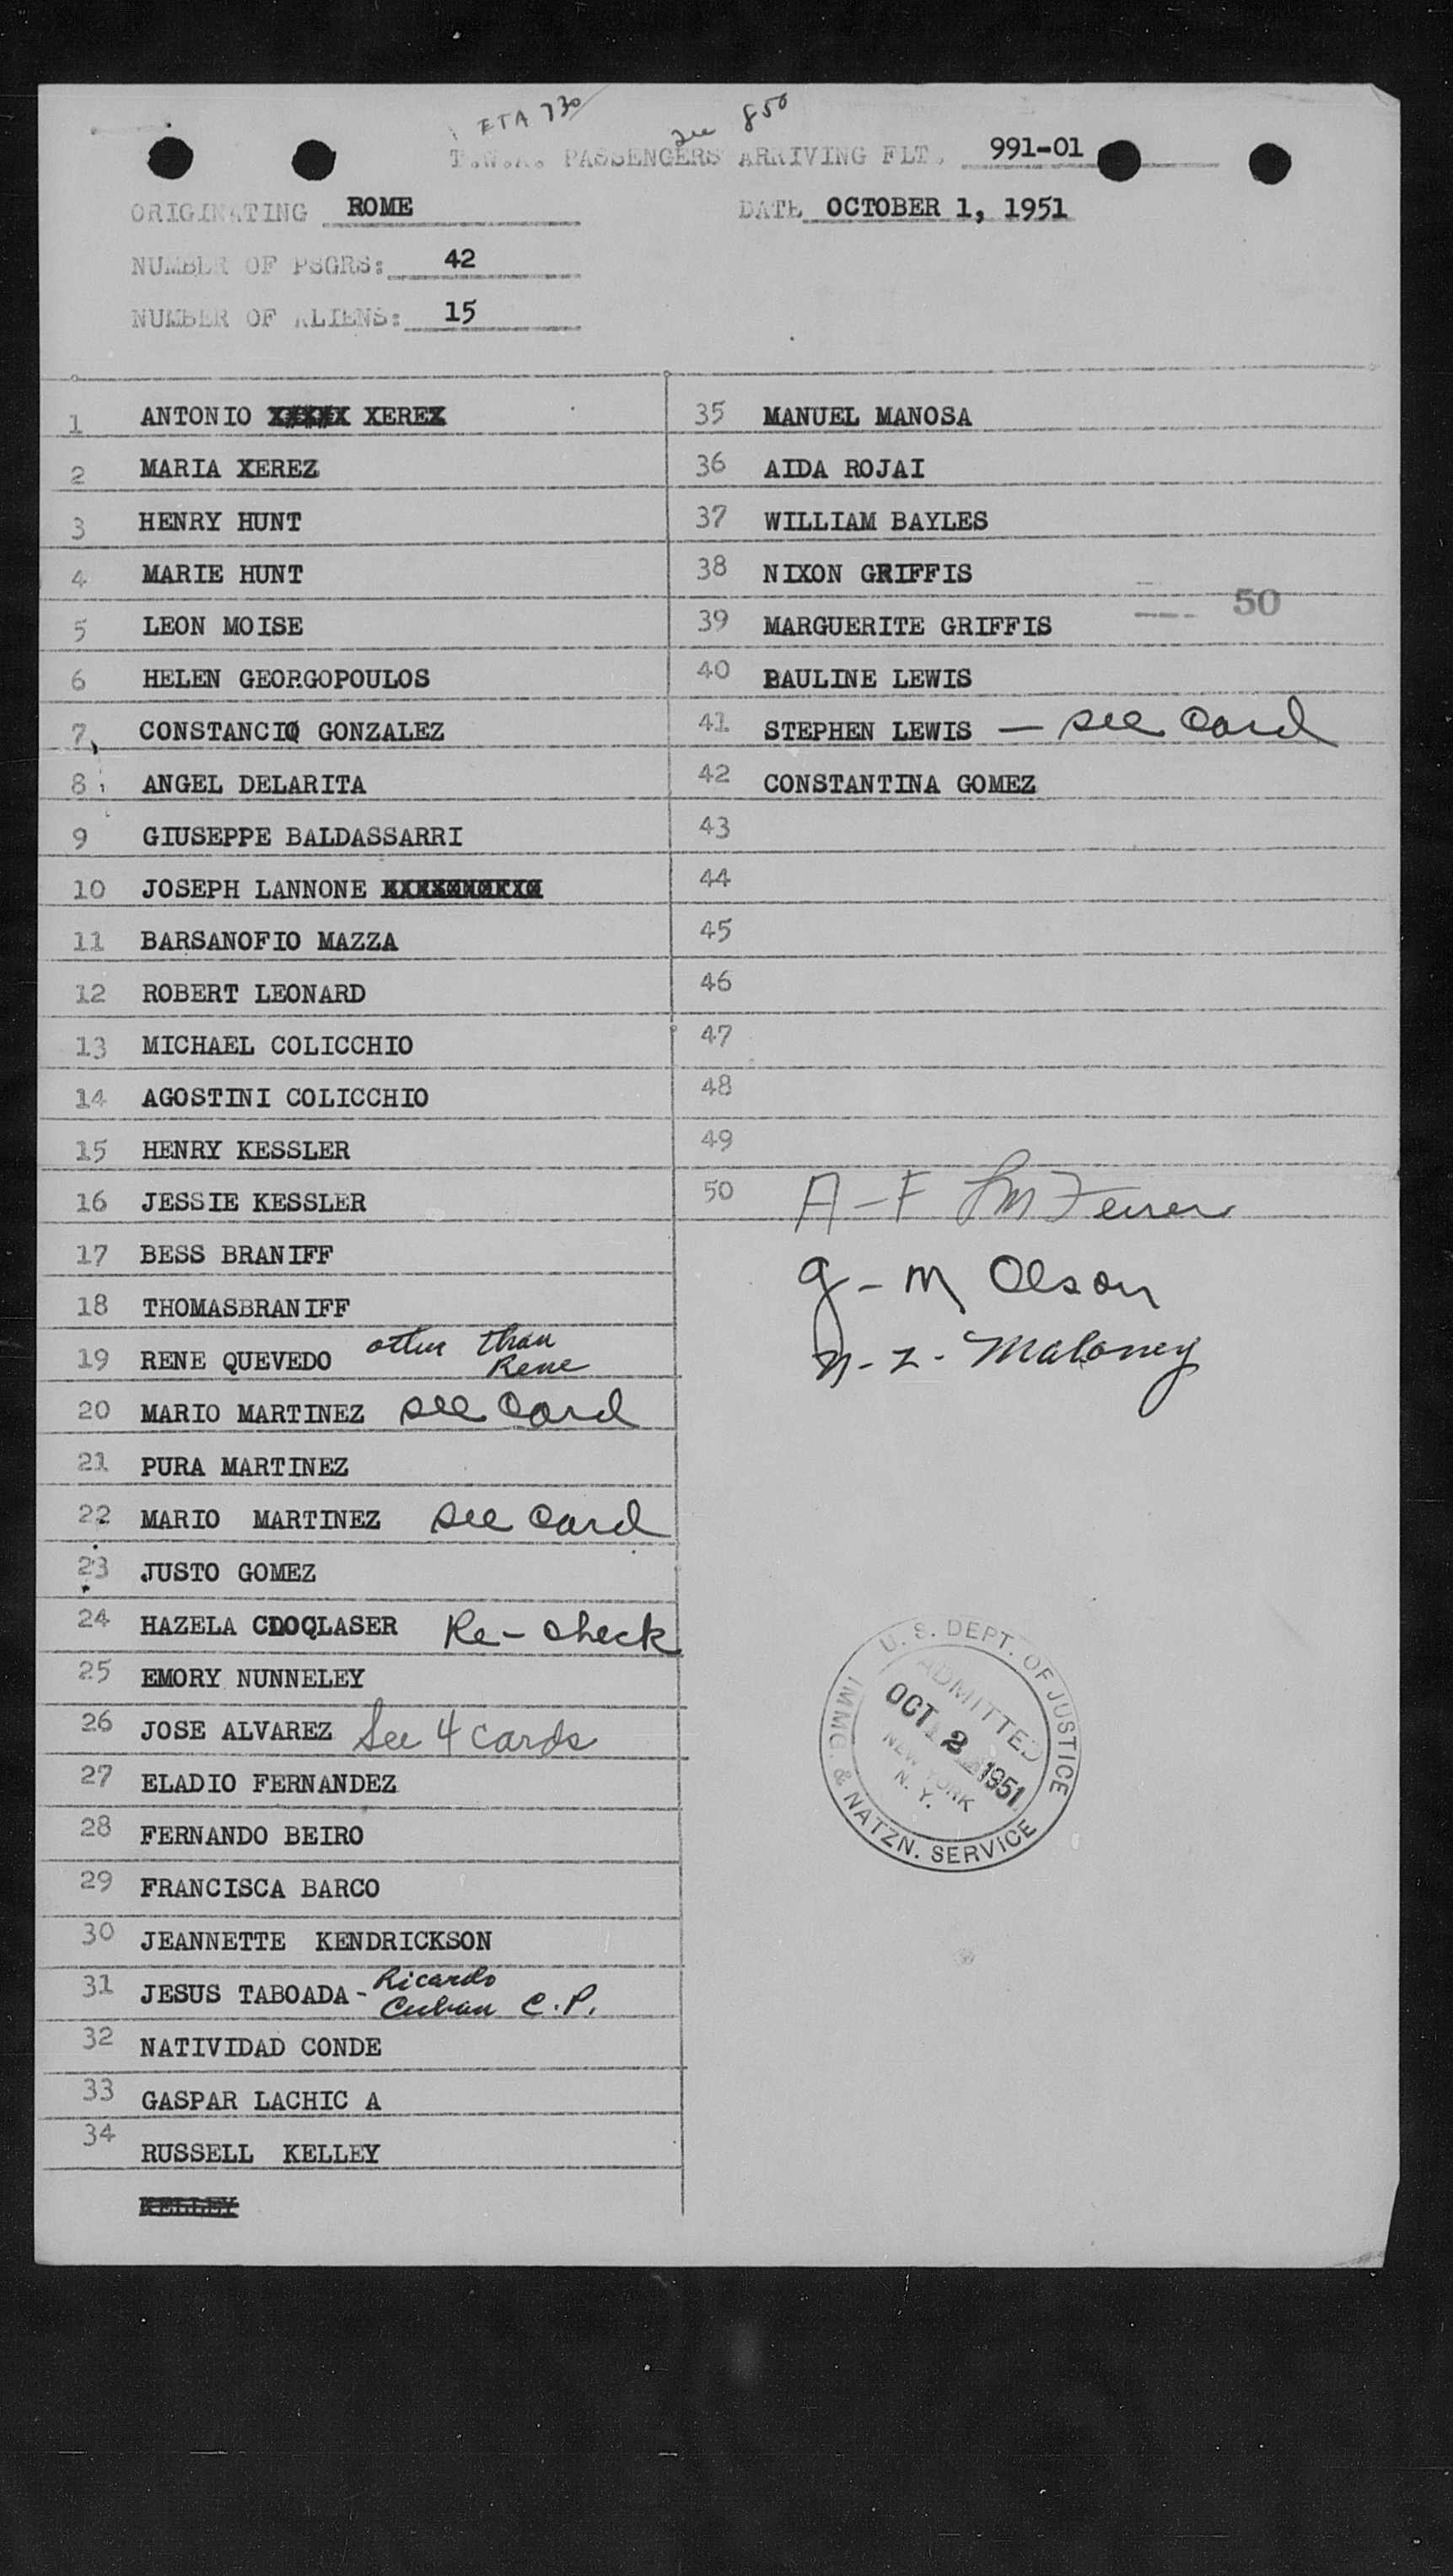 ETA 730
850
T.W.A. PASSENGERS ARRIVING FLT. 991-01
ORIGINATING ROME DATE OCTOBER 1, 1951
NUMBER OF PSGRS: 42
NUMBER OF ALIENS: 15
1 ANTONIO XEREZ
2 MARIA XEREZ
3 HENRY HUNT
4 MARIE HUNT
5 LEON MOISE
6 HELEN GEORGOPOULOS
7 CONSTANCIO GONZALEZ
8 ANGEL DELARITA
9 GIUSEPPE BALDASSARRI
10 JOSEPH LANNONE
11 BARSANOFIO MAZZA
12 ROBERT LEONARD
13 MICHAEL COLICCHIO
14 AGOSTINI COLICCHIO
15 HENRY KESSLER
16 JESSIE KESSLER
17 BESS BRANIFF
18 THOMASBRANIFF
19 RENE QUEVEDO other than Rene
20 MARIO MARTINEZ see card
21 PURA MARTINEZ
22 MARIO MARTINEZ see card
23 JUSTO GOMEZ
24 HAZELA CDOQLASER Re-check
25 EMORY NUNNELEY
26 JOSE ALVAREZ See 4 cards
27 ELADIO FERNANDEZ
28 FERNANDO BEIRO
29 FRANCISCA BARCO
30 JEANNETTE KENDRICKSON
31 JESUS TABOADA - Ricardo Cuban C.P.
32 NATIVIDAD CONDE
33 GASPAR LACHIC A
34 RUSSELL KELLEY
KELLEY
35 MANUEL MANOSA
36 AIDA ROJAI
37 WILLIAM BAYLES
38 NIXON GRIFFIS
50
39 MARGUERITE GRIFFIS
40 PAULINE LEWIS
41 STEPHEN LEWIS - see card
42 CONSTANTINA GOMEZ
43
44
45
46
47
48
49
50 A-F
G-M Olson
N-Z- Maloney
U. S. DEPT. OF JUSTICE
ADMITTED
OCT 2 1951
NEW YORK
N. Y.
IMMG. & NATZN. SERVICE